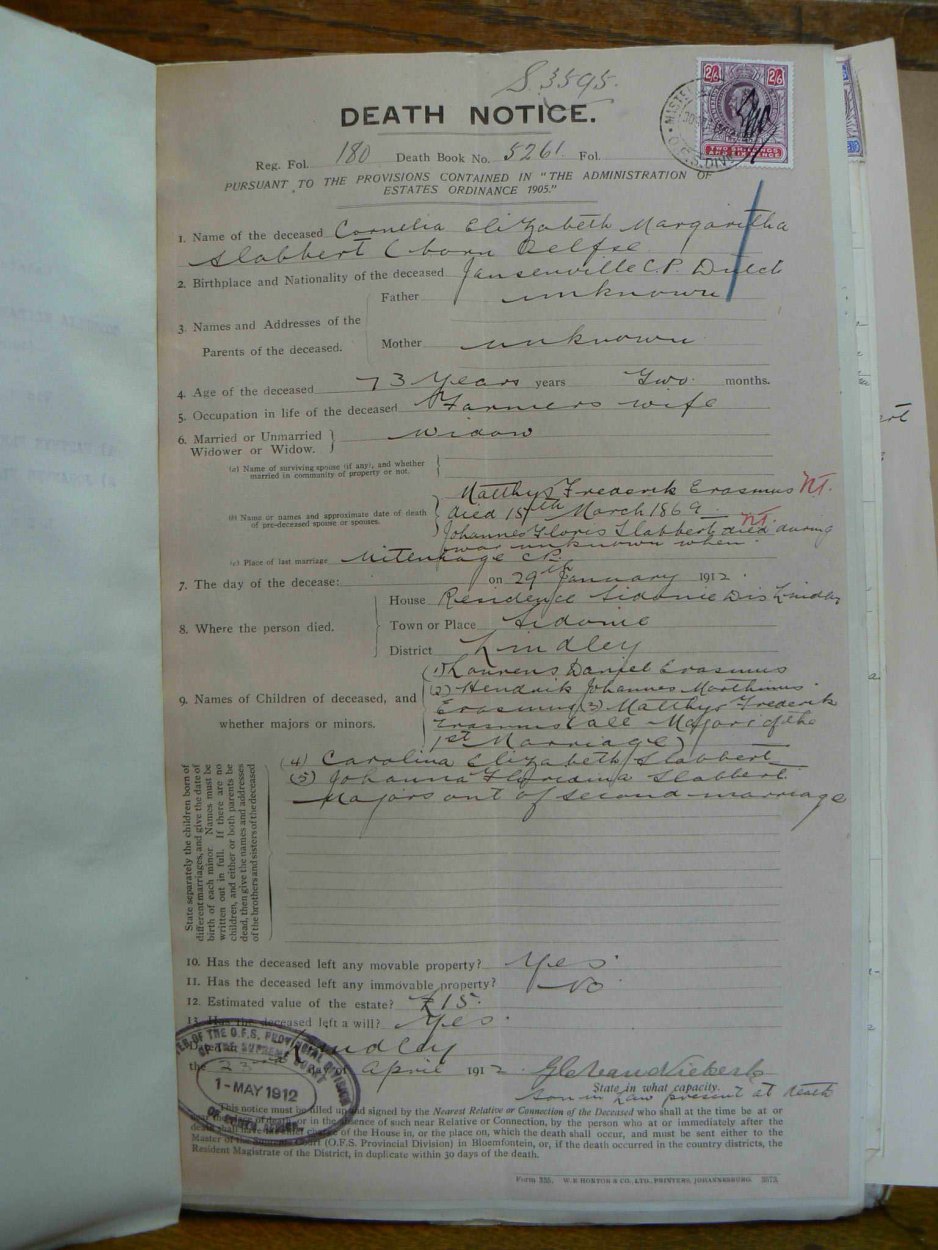 S.3595.
2/6 2/6
TWO SHILLINGS
AND SIXPENCE
DEATH NOTICE.
Reg. Fol. 180 Death Book No. 5261. Fol.
PURSUANT TO THE PROVISIONS CONTAINED IN "THE ADMINISTRATION OF
ESTATES ORDINANCE 1905."
1. Name of the deceased Cornelia Elizabeth Margaritha
Slabbert (born Delfse
2. Birthplace and Nationality of the deceased Jansenville C.P. Dutch
Father unknown
3. Names and Addresses of the
Parents of the deceased.
Mother unknown
4. Age of the deceased 73 Years years Two months.
5. Occupation in life of the deceased Farmers wife
6. Married or Unmarried
Widower or Widow. Widow
(a) Name of surviving spouse (if any), and whether
married in community of property or not.
Matthys Frederik Erasmus NT.
(b) Name or names and approximate date of death
of pre-deceased spouse or spouses. died 15th March 1869 NT.
Johannes Floris Slabbert died during
war unknown when
(c) Place of last marriage Uitenhage C.P.
7. The day of the decease: on 29th January 1912.
House Residence Sidonie Dis Lindley
8. Where the person died. Town or Place Sidonie
District Lindley
(1) Lourens Daniel Erasmus
(2) Hendrik Johannes Marthinus
9. Names of Children of deceased, and
whether majors or minors.
Erasmus (3) Matthys Frederik
Erasmus (all Majors of the
1st Marriage)
(4) Carolina Elizabeth Slabbert
(5) Johanna Floridina Slabbert
Majors out of second marriage
State separately the children born of
different marriages, and give the date of
birth of each minor. Names must be
written out in full. If there are no
children, and either or both parents be
dead, then give the names and addresses
of the brothers and sisters of the deceased
10. Has the deceased left any movable property? Yes
11. Has the deceased left any immovable property? No
12. Estimated value of the estate? £15.
13. Has the deceased left a will? Yes.
Lindley
the 23rd day of April 1912
State in what capacity.
Son in Law present at death
MASTER OF THE O.F.S. PROVINCIAL DIVISION
OF THE SUPREME COURT
1-MAY 1912
This notice must be filled up and signed by the Nearest Relative or Connection of the Deceased who shall at the time be at or
near the place of death, or in the absence of such near Relative or Connection, by the person who at or immediately after the
death shall have the charge of the House in, or the place on, which the death shall occur, and must be sent either to the
Master of the Supreme Court (O.F.S. Provincial Division) in Bloemfontein, or, if the death occurred in the country districts, the
Resident Magistrate of the District, in duplicate within 30 days of the death.
Form 335. W. E HORTOR & CO., LTD., PRINTERS, JOHANNESBURG. 3573.